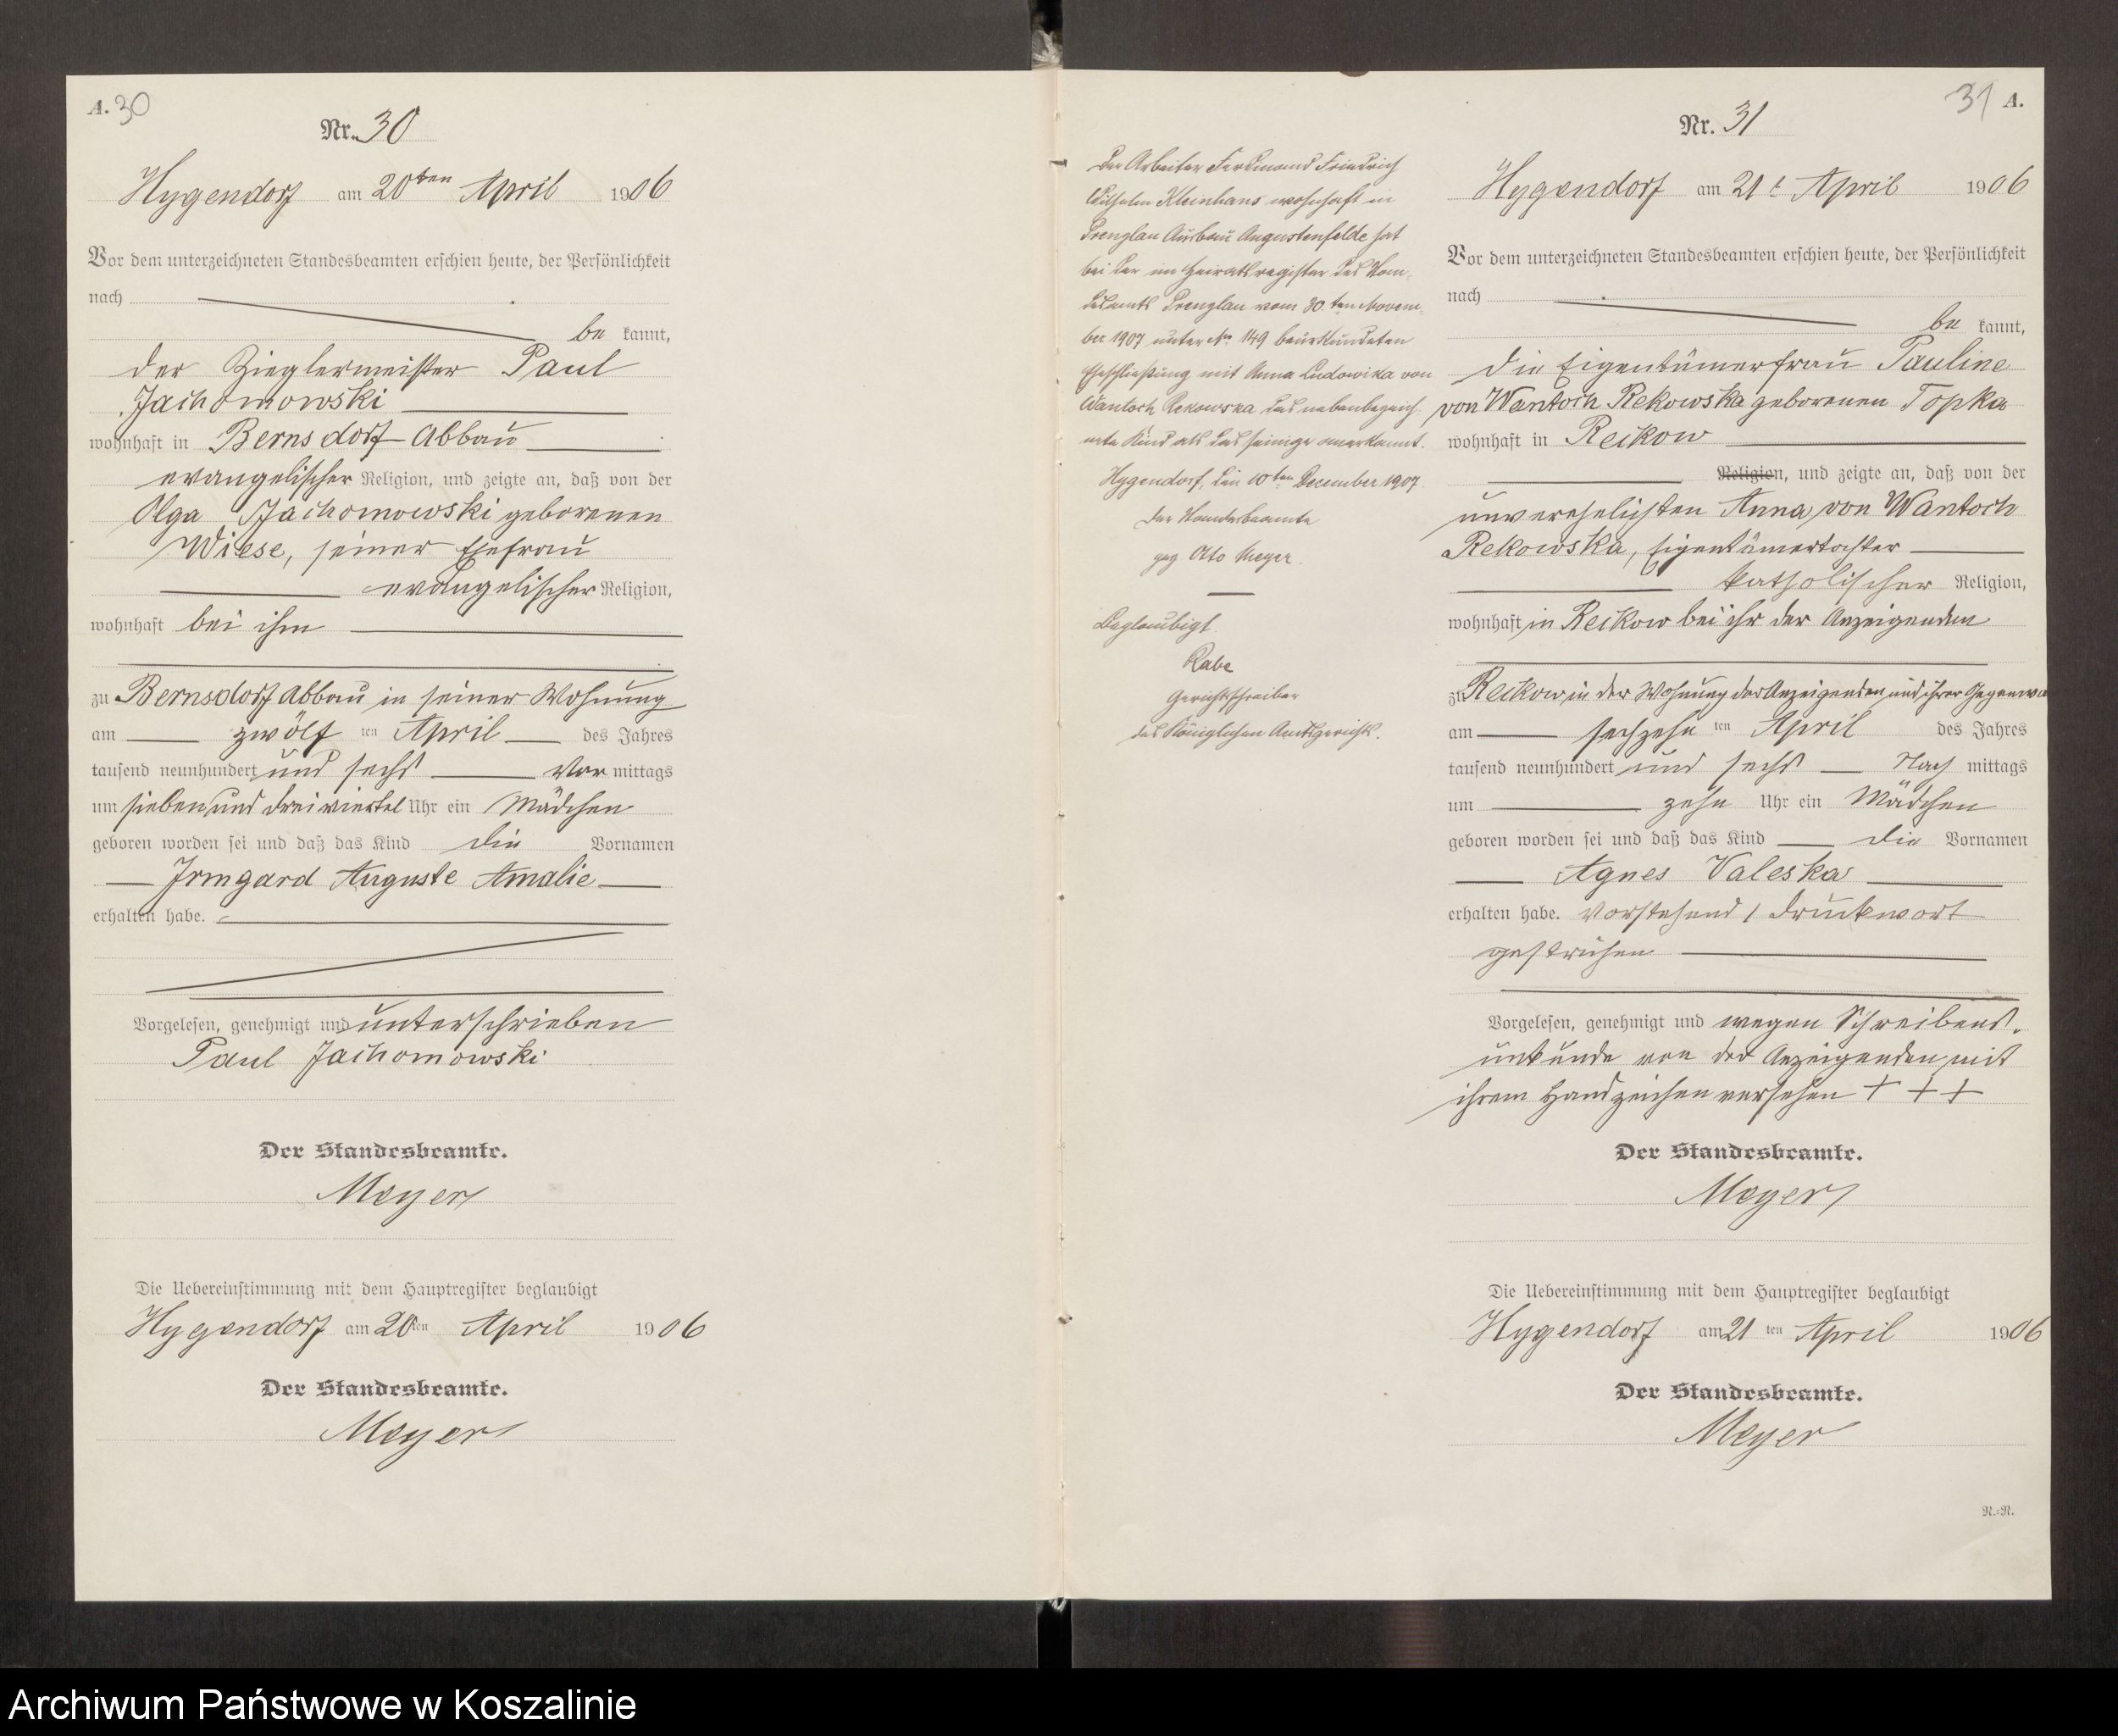 A. 30
Nr. 30
Hygendorf am 20ten April 1906
Vor dem unterzeichneten Standesbeamten erschien heute, der Persönlichkeit
nach
be kannt,
der Zieglermeister Paul
Jachomowski
wohnhaft in Bernsdorf Abbau
evangelischer Religion, und zeigte an, daß von der
Olga Jachomowski geborenen
Wiese, seiner Ehefrau
evangelischer Religion,
wohnhaft bei ihm
zu Bernsdorf Abbau in seiner Wohnung
am zwölf ten April des Jahres
tausend neunhundert und sechs Vor mittags
um sieben und dreiviertel Uhr ein Mädchen
geboren worden sei und daß das Kind die Vornamen
Irmgard Auguste Amalie
erhalten habe.
Vorgelesen, genehmigt und unterschrieben
Paul Jachomowski
Der Standesbeamte.
Meyer
Die Uebereinstimmung mit dem Hauptregister beglaubigt
Hygendorf am 20ten April 1906
Der Standesbeamte.
Meyer
Der Arbeiter Ferdinand Friedrich
Wilhelm Kleinhans wohnhaft in
Prenzlau Ausbau Augustenfelde hat
bei der im Heiratsregister des Stan-
desamts Prenzlau vom 30ten Novem-
ber 1907 unter No 149 beurkundeten
Eheschließung mit Anna Ludowika von
Wantoch Rekowska das nebenbezeich-
nete Kind als das seinige anerkannt.
Hygendorf, den 10ten December 1907
Der Standesbeamte
gez Otto Meyer.
Beglaubigt
Rabe
Gerichtsschreiber
des Königlichen Amtsgerichts.
31 A.
Nr. 31
Hygendorf am 21t April 1906
Vor dem unterzeichneten Standesbeamten erschien heute, der Persönlichkeit
nach
be kannt,
die Eigentümerfrau Pauline
von Wantoch Rekowska geborenen Topka
wohnhaft in Reckow
Religion, und zeigte an, daß von der
unverehelichten Anna von Wantoch
Rekowska, Eigentümertochter
katholischer Religion,
wohnhaft in Reckow bei ihr der Anzeigenden
zu Reckow in der Wohnung der Anzeigenden und ihrer Gegenwa
am sechzehn ten April des Jahres
tausend neunhundert und sechs Nach mittags
um zehn Uhr ein Mädchen
geboren worden sei und daß das Kind die Vornamen
Agnes Valeska
erhalten habe. Vorstehend 1 Druckwort
gestrichen
Vorgelesen, genehmigt und wegen Schreibens-
unkunde von der Anzeigenden mit
ihrem Handzeichen versehen + + +
Der Standesbeamte.
Meyer
Die Uebereinstimmung mit dem Hauptregister beglaubigt
Hygendorf am 21 ten April 1906
Der Standesbeamte.
Meyer
N.=R.
Archiwum Państwowe w Koszalinie